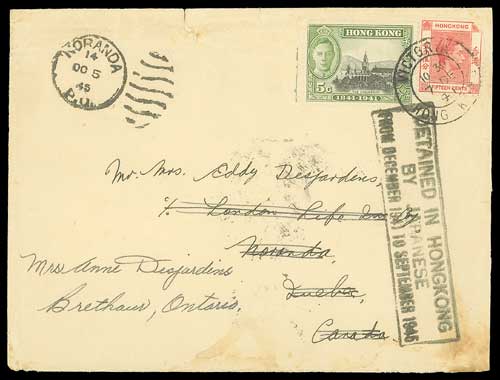 NORANDA
14
OC 5
45
P.Q.
HONG KONG
5c
1841-1941
HONGKONG
FIFTEEN CENTS
VICTORIA
HONG K
DETAINED IN HONGKONG
BY JAPANESE
FROM DECEMBER 1941 TO SEPTEMBER 1945
Mr. Mrs. Eddy Desjardins,
c/o London Life Ins. Co
Noranda
Quebec,
Canada
Mrs Anne Desjardins
Brethour, Ontario.